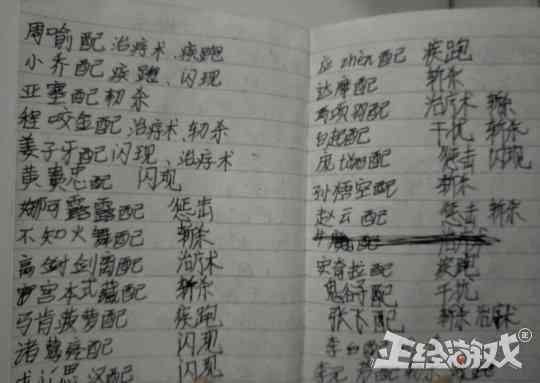 周喻配 治疗术、疾跑
小乔配 疾跑、闪现
亚塞配 轫杀
程咬金配 治疗术、轫杀
姜子牙配 闪现、治疗术
黄忠配 闪现
娜可露露配 惩击
不知火舞配 斩杀
高 剑离配 治疗术
宫本式藏配 斩杀
马肯菠萝配 疾跑
诸葛 配 闪现
配 闪现
zhèn配 疾跑
达摩配 斩杀
项羽配 治疗术 斩杀
白起配 干扰 斩杀
庞 配 惩击 闪现
孙悟空配 斩杀
赵云配 惩击 斩杀
安奇拉配 疾跑
鬼谷子配 干扰
张飞配 斩杀
李白
正经游戏
正